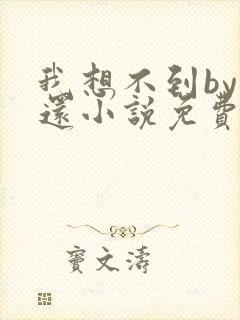 我想不到by
還小說免費
竇文濤